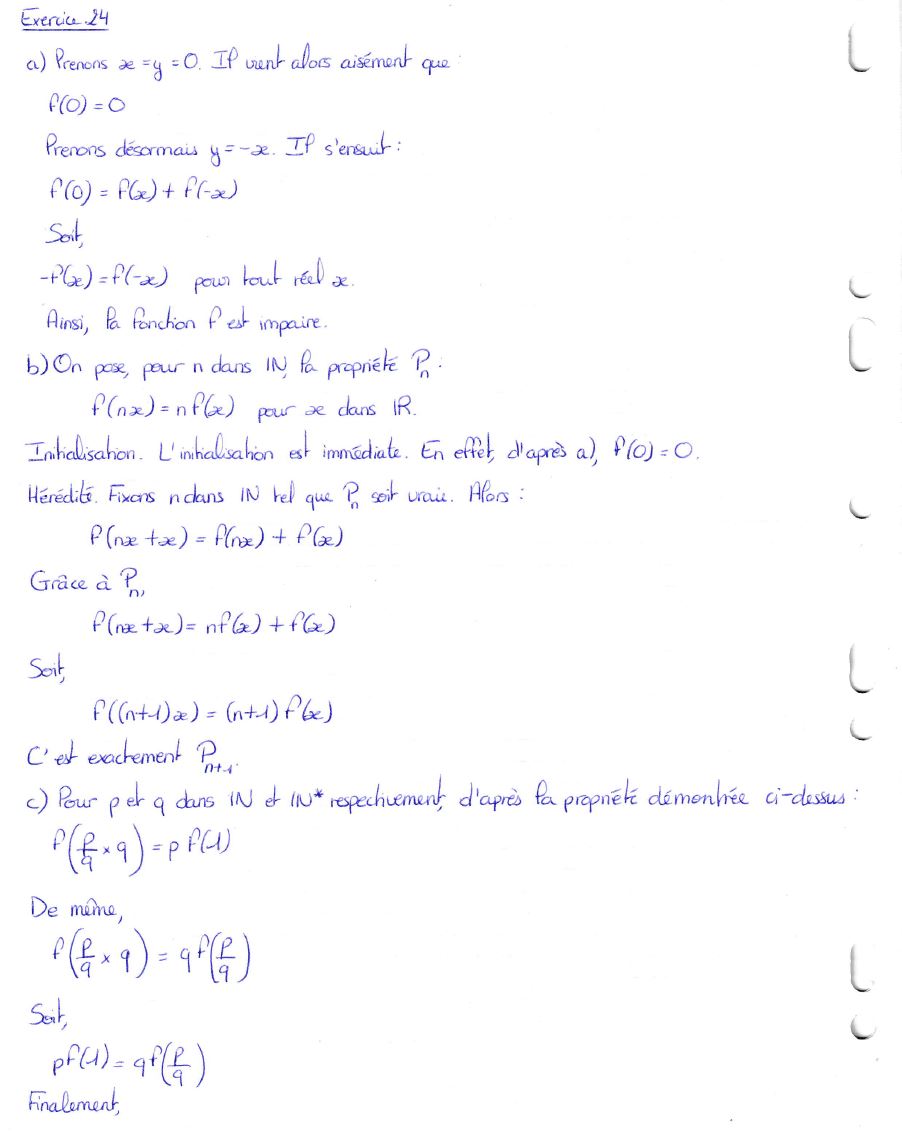 Exercice 24
a) Prenons x = y = 0. Il vient alors aisément que :
f(0) = 0
Prenons désormais y = -x. Il s'ensuit :
f(0) = f(x) + f(-x)
Soit,
-f(x) = f(-x) pour tout réel x.
Ainsi, la fonction f est impaire.
b) On pose, pour n dans IN, la propriété Pn :
f(nx) = n f(x) pour x dans IR.
Initialisation. L'initialisation est immédiate. En effet, d'après a), f(0) = 0.
Hérédité. Fixons n dans IN tel que Pn soit vraie. Alors :
f(nx + x) = f(nx) + f(x)
Grâce à Pn,
f(nx + x) = nf(x) + f(x)
Soit,
f((n+1)x) = (n+1) f(x)
C'est exactement Pn+1.
c) Pour p et q dans IN et IN* respectivement, d'après la propriété démontrée ci-dessus :
f(p/q × q) = p f(1)
De même,
f(p/q × q) = q f(p/q)
Soit,
pf(1) = q f(p/q)
Finalement,